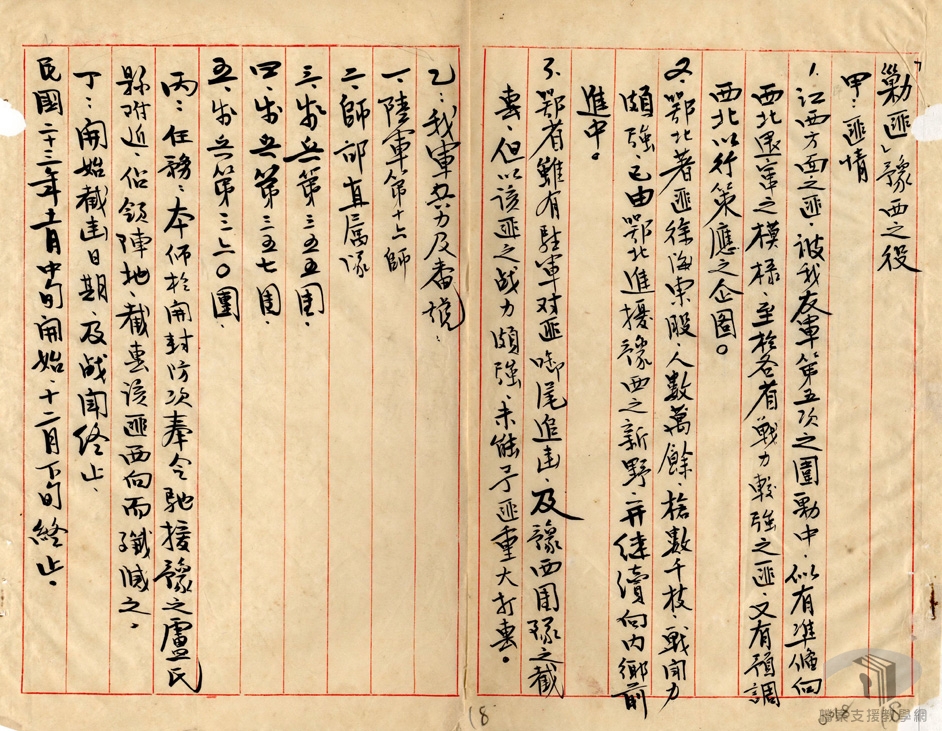 「勦匪」豫西之役
甲：匪情
1. 江西方面之匪、被我友軍第五次之圍勦中、似有准偹向
西北退竄之模樣、至於各省戰力較強之匪、又有預調
西北以行策應之企圖。
2. 鄂北著匪徐海東股、人數萬餘、槍數千枝、戰鬥力
頗強、已由鄂北進擾豫西之新野、并继續向内鄉前
進中。
3. 鄂省雖有駐軍对匪啣尾追击、及豫西團隊之截
击、但以该匪之战力頗強、未能予匪重大打击。
乙：我軍兵力及番號：
一、陸軍第六十師
二、師部直属隊
三、步兵第三五五團、
四、步兵第三五七團、
五、步兵第三六〇團、
丙：任務：本师於開封防次奉令馳援豫之盧氏
縣附近、佔領陣地、截击该匪西向而殲滅之。
丁：開始截击日期、及战鬥終止、
民國二十三年十一月中旬開始、十二月下旬終止。
18
18
檔案支援教學網